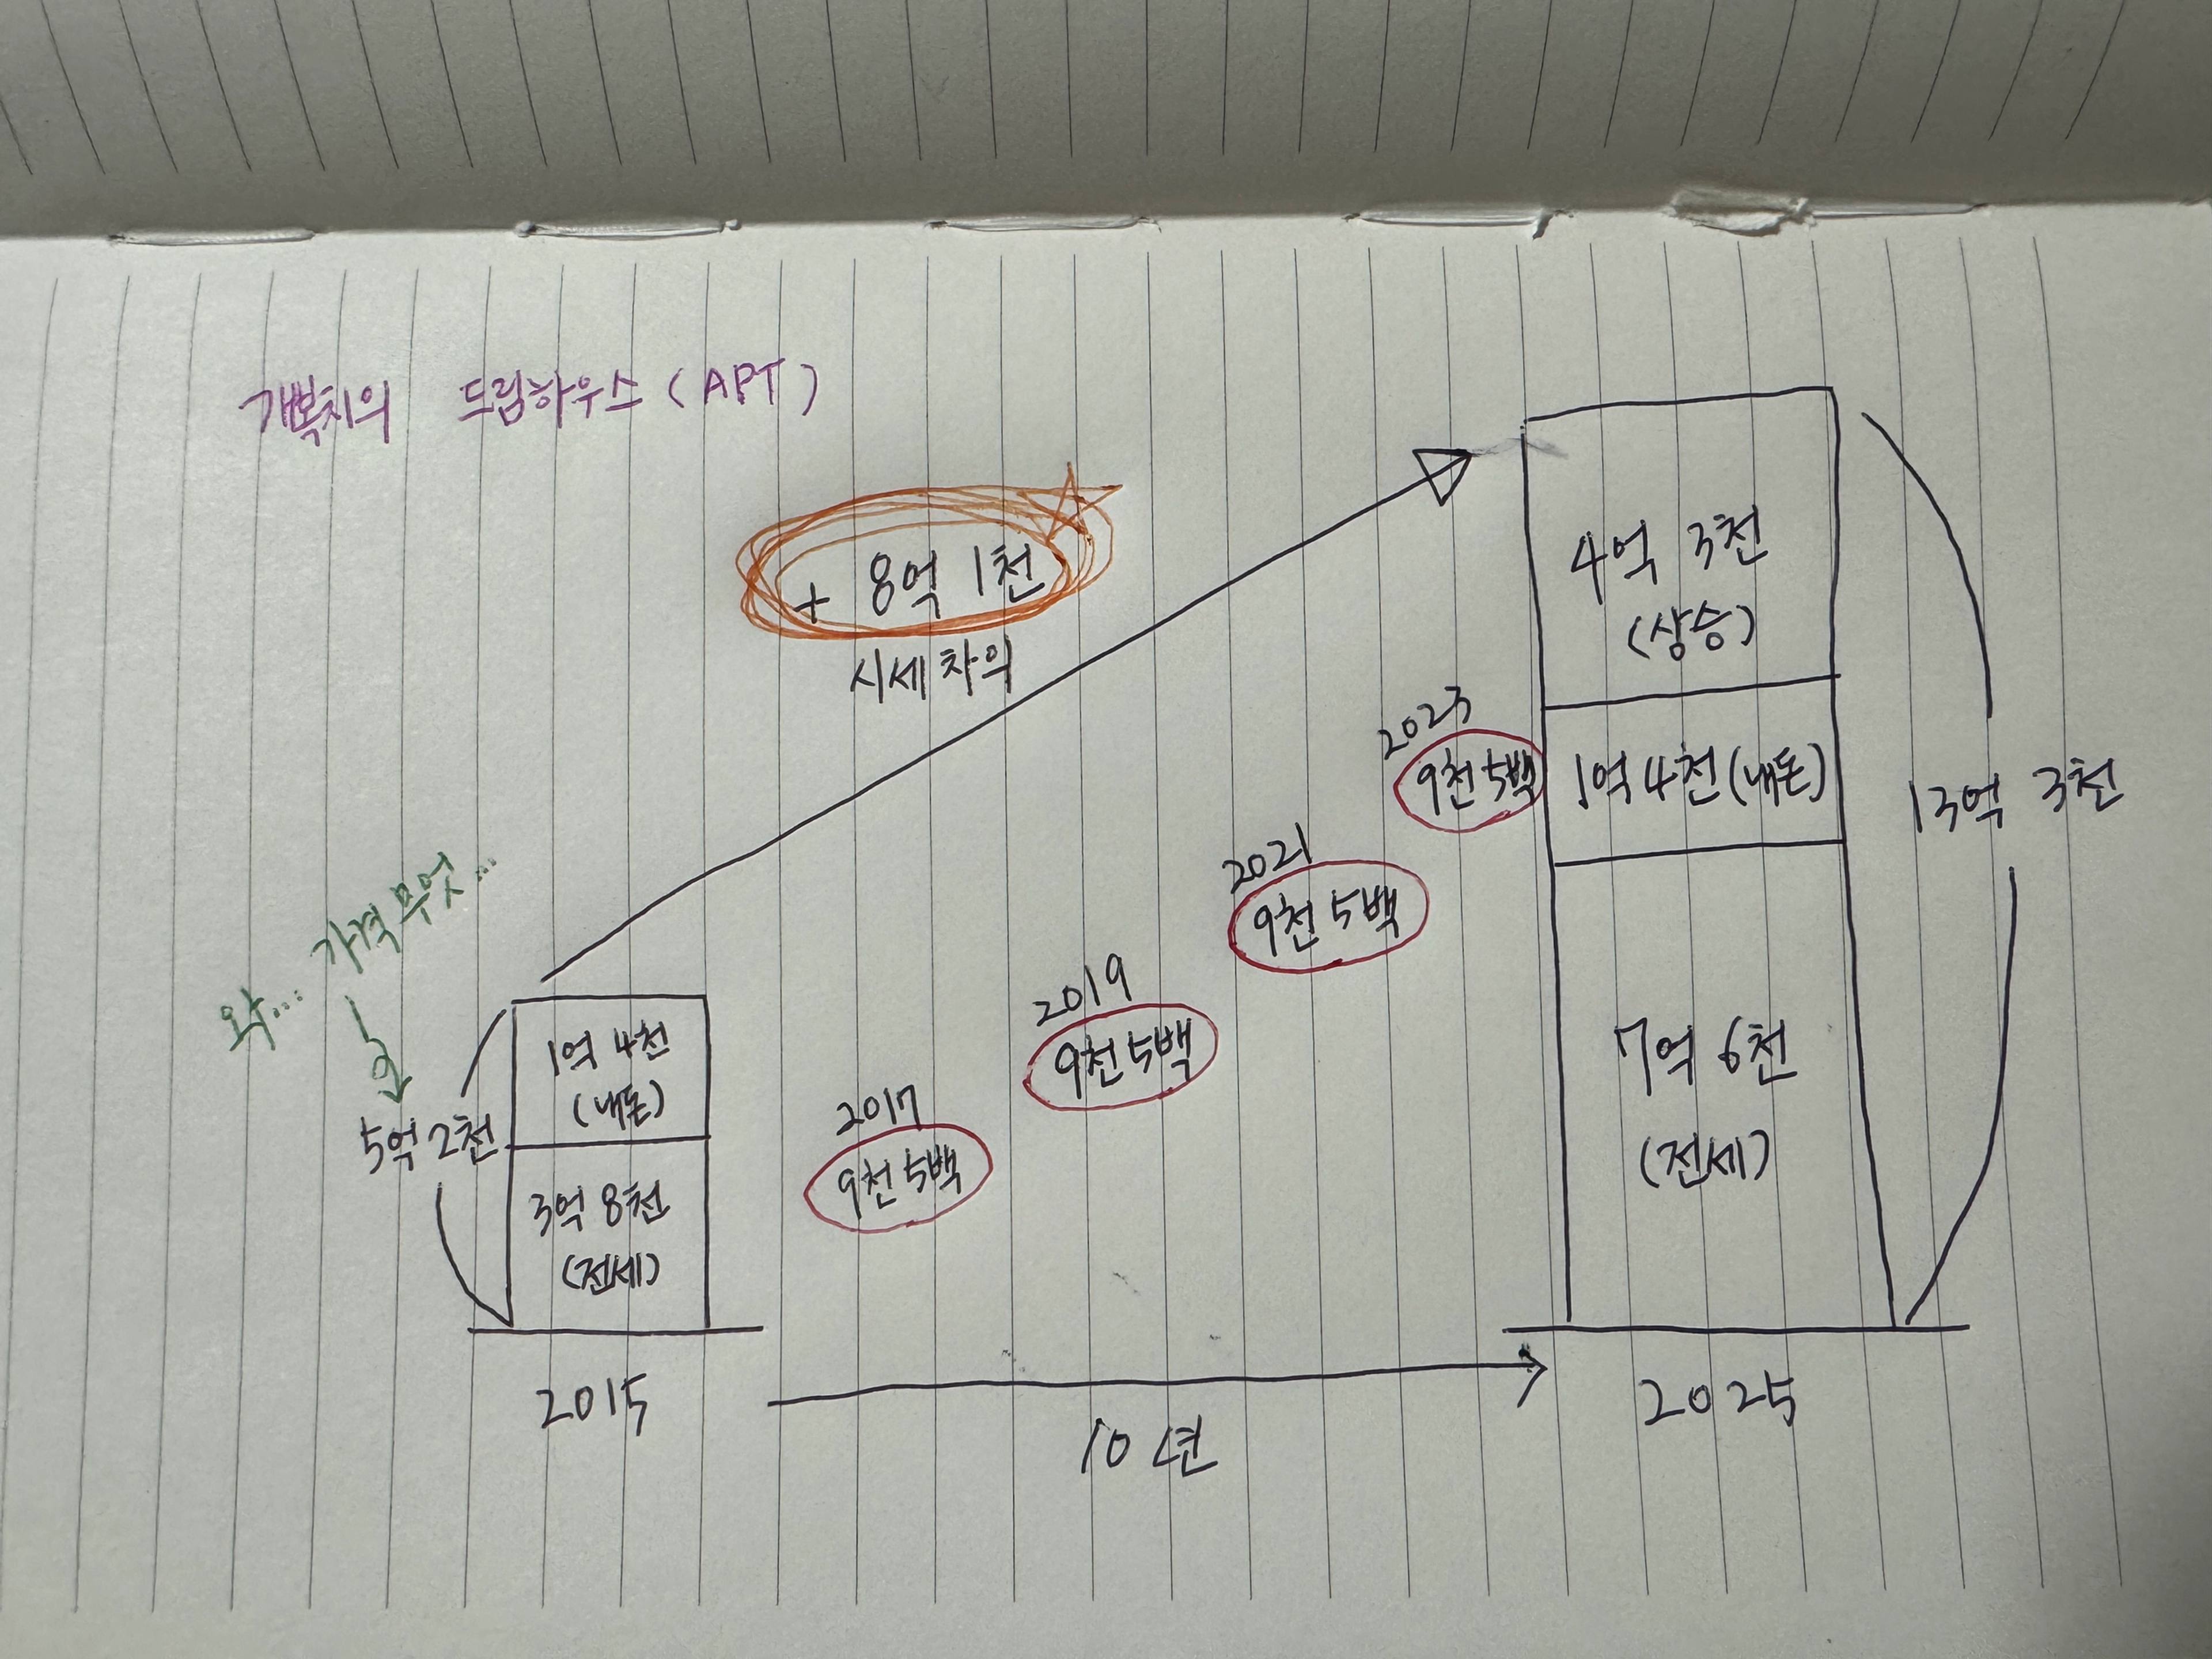 개복치의 드림하우스 (APT)
+ 8억 1천
시세차익
와... 가격 무엇...
5억 2천
1억 4천
(내돈)
3억 8천
(전세)
2015
2017
9천 5백
2019
9천 5백
2021
9천 5백
2023
9천 5백
10년
4억 3천
(상승)
1억 4천 (내돈)
7억 6천
(전세)
13억 3천
2025